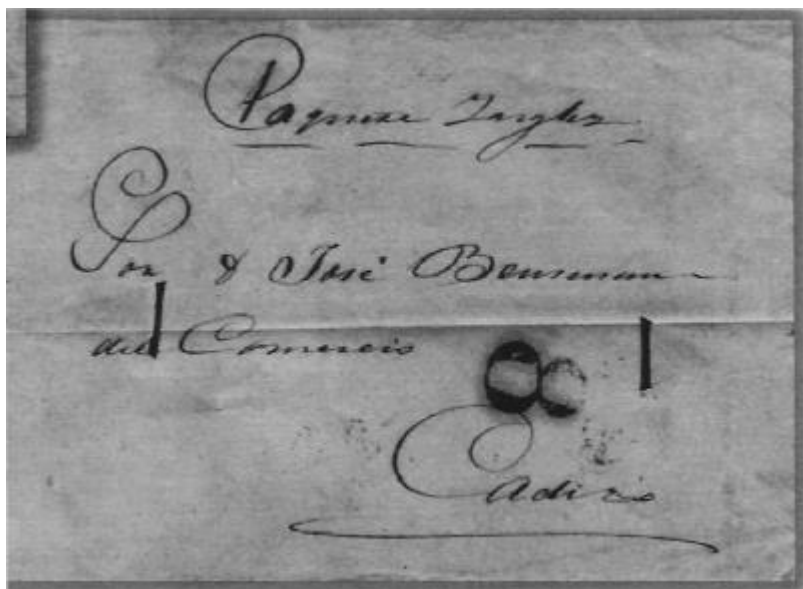 Paquete Ingles
Sor Dn José Bensusan
del Comercio
8
Cadiz